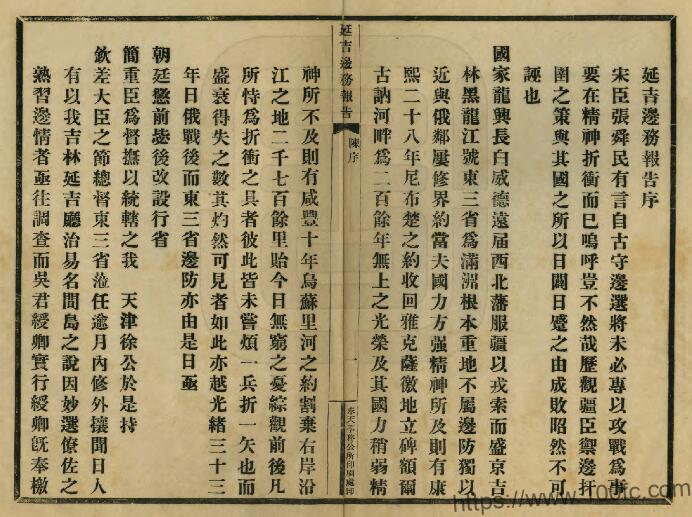 延吉邊務報告序
宋臣張舜民有言自古守邊選將未必專以攻戰爲事
要在精神折衝而已嗚呼豈不然哉歷觀疆臣禦邊扞
圉之策與其國之所以日闢日蹙之由成敗昭然不可
誣也
國家龍興長白威德遠屆西北藩服疆以戎索而盛京吉
林黑龍江號東三省爲滿洲根本重地不屬邊防獨以
近與俄鄰屢修界約當夫國力方强精神所及則有康
熙二十八年尼布楚之約收回雅克薩徼地立碑額爾
古訥河畔爲二百餘年無上之光榮及其國力稍弱精
延吉邊務報告
陳序
一
奉天學務公所印刷處印
神所不及則有咸豐十年烏蘇里河之約割棄右岸沿
江之地二千七百餘里貽今日無窮之憂綜觀前後凡
所恃爲折衝之具者彼此皆未嘗煩一兵折一矢也而
盛衰得失之數其灼然可見者如此亦越光緒三十三
年日俄戰後而東三省邊防亦由是日亟
朝廷懲前毖後改設行省
簡重臣爲督撫以統轄之我 天津徐公於是持
欽差大臣之節總督東三省涖任逾月內修外攘聞日人
有以我吉林延吉廳治易名間島之說因妙選僚佐之
熟習邊情者亟往調查而吳君綬卿實行綬卿旣奉檄
https://www.700tc.com